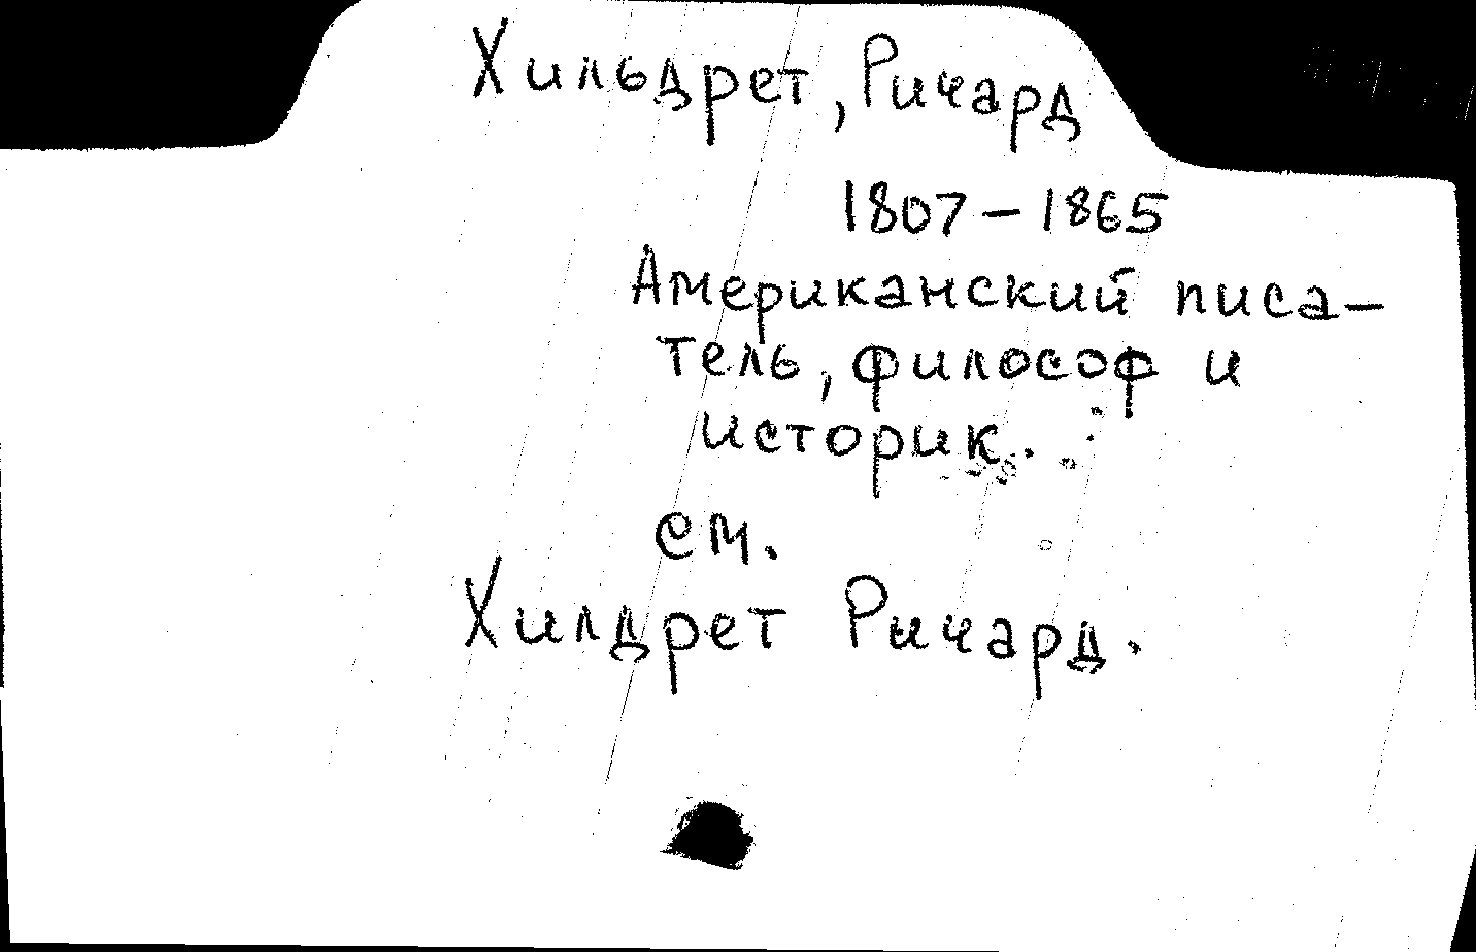 Хильдрет, Ричард
1807 – 1865
Американский писа-
тель, философ и
историк.
см.
Хилдрет Ричард.